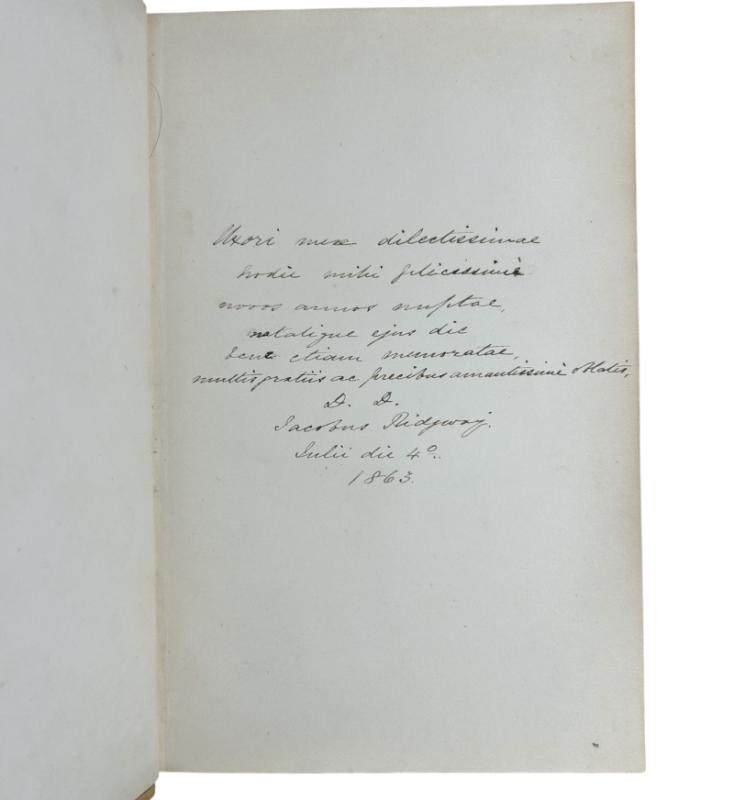 Uxori meæ dilectissimae
hodie mihi felicissimè
novos annos nuptae,
natalique ejus die
bene etiam memoratae,
multis gratiis ac precibus amantissimè oblatis,
D. D.
Jacobus Ridgway.
Julii die 4º.
1863.